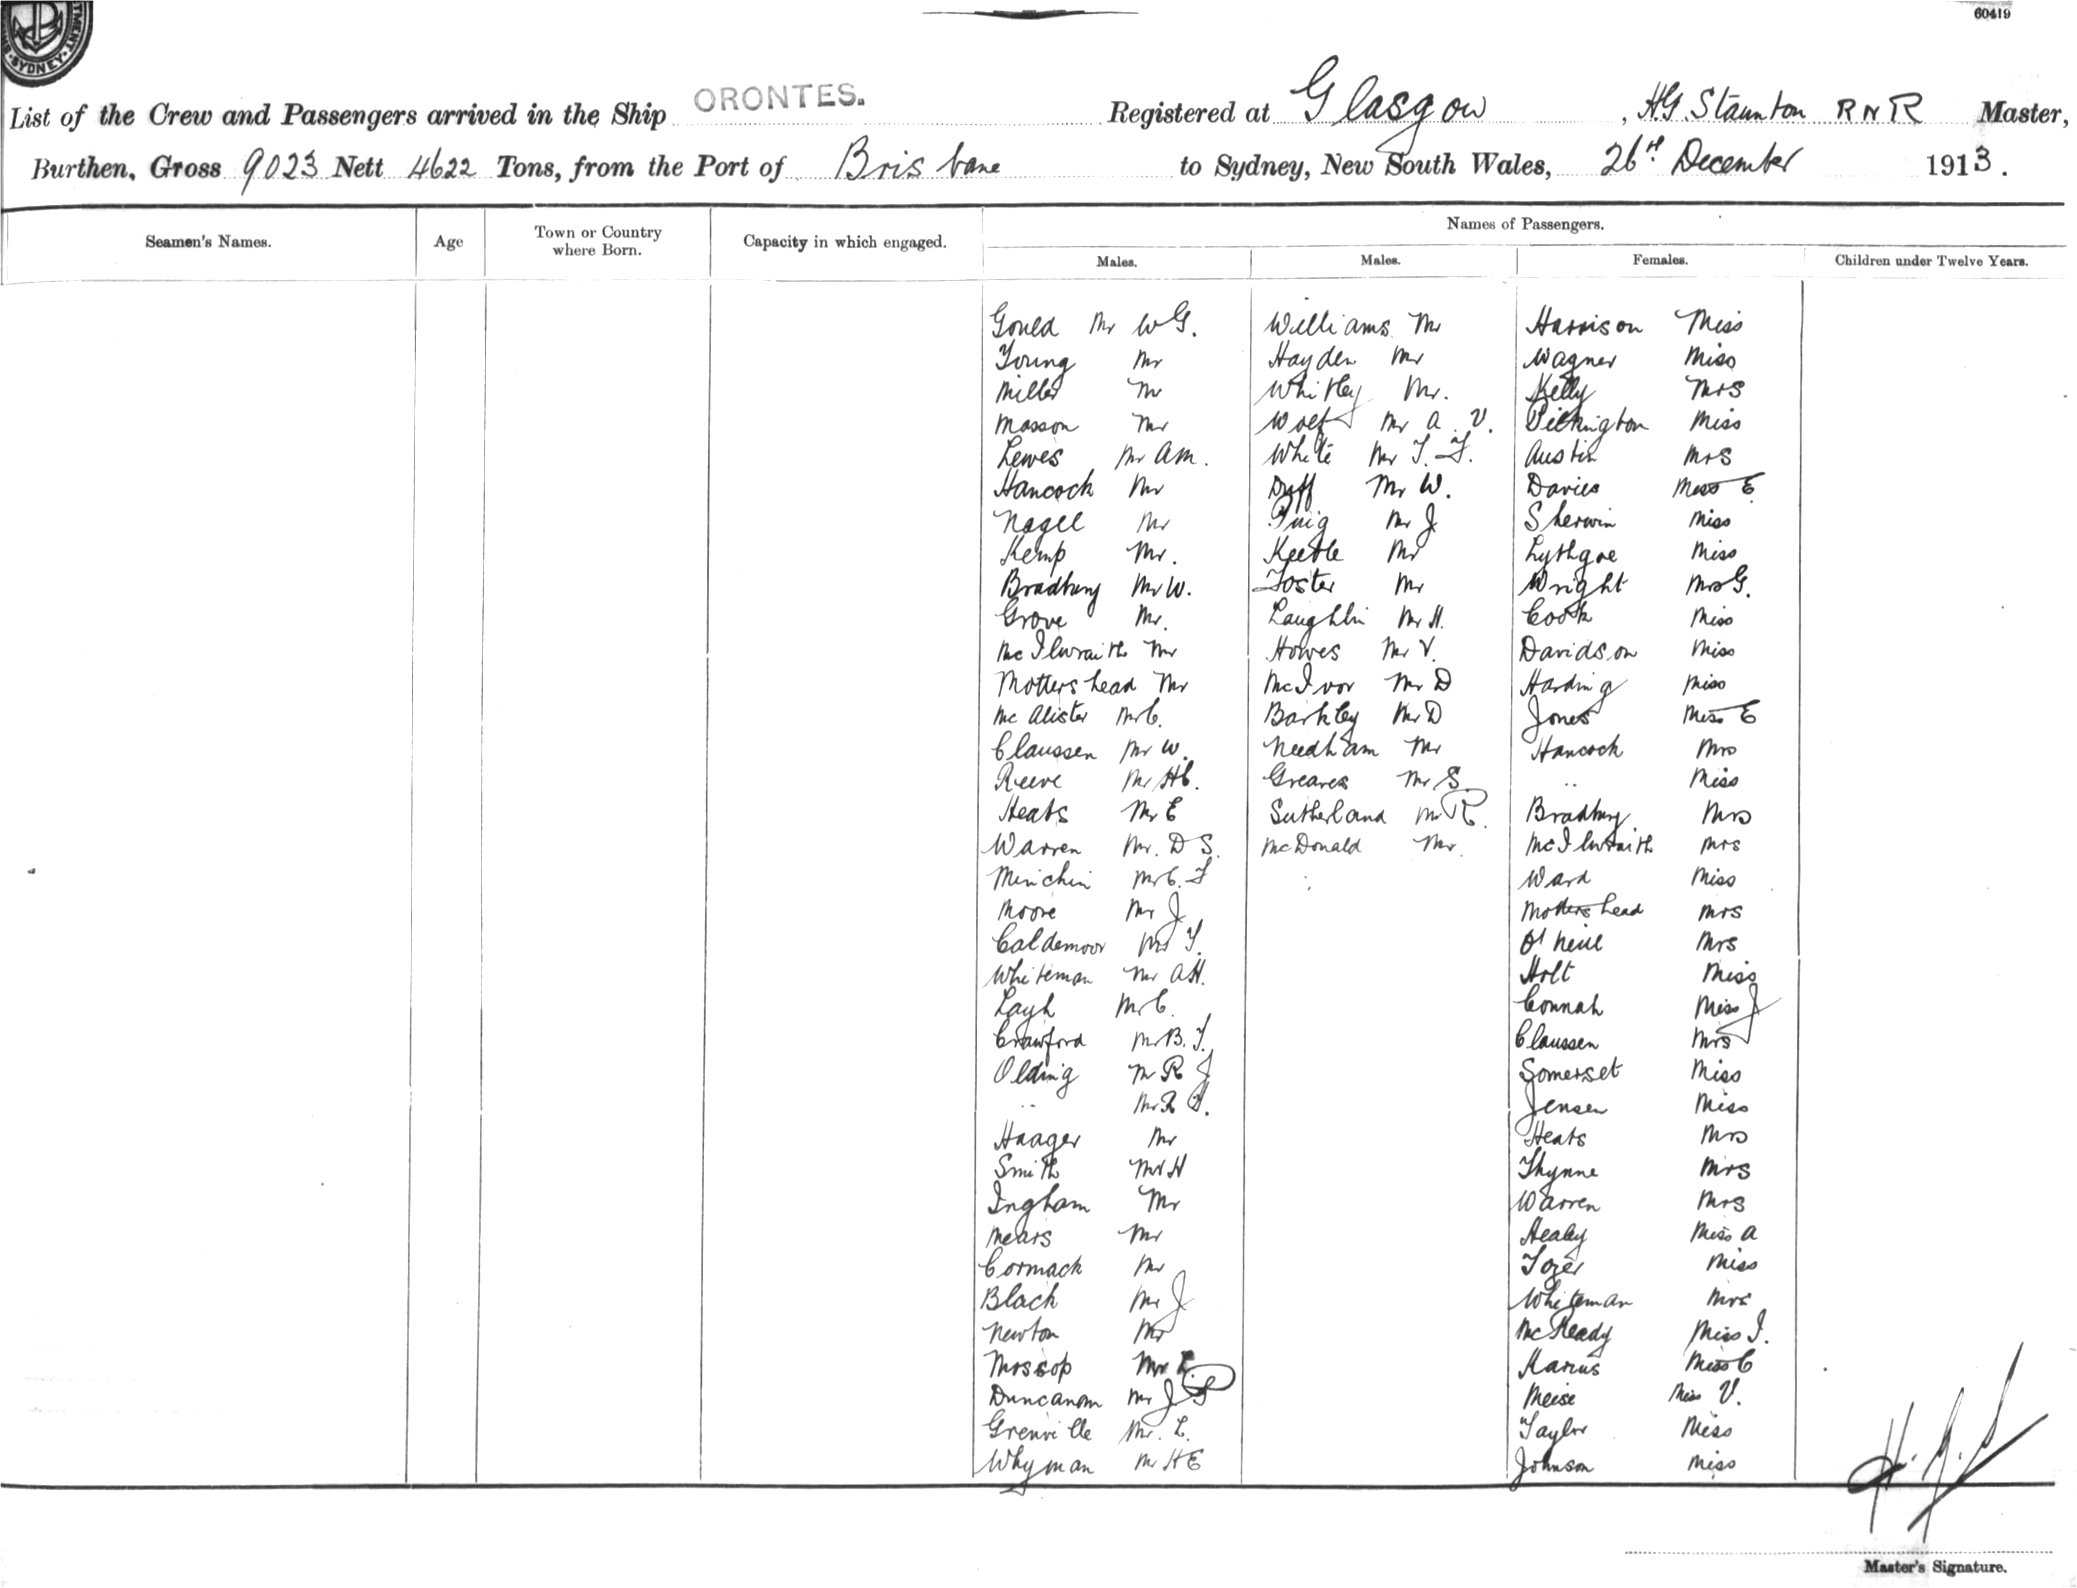 60419
SYDNEY
List of the Crew and Passengers arrived in the Ship ORONTES. Registered at Glasgow, H.G. Staunton RNR Master,
Burthen, Gross 9023 Nett 4622 Tons, from the Port of Brisbane to Sydney, New South Wales, 26th December 1913.
Names of Passengers.
Seamen's Names. Age Town or Country where Born. Capacity in which engaged. Males. Males. Females. Children under Twelve Years.
Gould Mr W G. Williams Mr Harrison Miss
Young Mr Hayden Mr Wagner Miss
Miller Mr Whitley Mr. Kelly Mrs
Masson Mr Wolf Mr A. V. Pilkington Miss
Lewes Mr A M. White Mr T. F. Austin Mrs
Hancock Mr Duff Mr W. Davies Miss E
Nagel Mr Puig Mr J Sherwin Miss
Kemp Mr. Keetle Mr Lythgoe Miss
Bradbury Mr W. Foster Mr Wright Mrs G.
Grove Mr. Laughlin Mr H. Cook Miss
McIlwraith Mr Howes Mr V. Davidson Miss
Mottershead Mr McIvor Mr D Harding Miss
McAlister Mr C. Barkley Mr D Jones Miss E
Claussen Mr W. Needham Mr Hancock Mrs
Reeve Mr H C. Greaves Mr S. " Miss
Heats Mr E Sutherland Mr R. Bradbury Mrs
Warren Mr. D S. McDonald Mr. McIlwraith Mrs
Minchin Mr C. F Ward Miss
Moore Mr J Mottershead Mrs
Caldemoor Mr T. O'Neill Mrs
Whiteman Mr A H. Holt Miss
Layh Mr C. Connah Miss J
Crawford Mr B. T. Claussen Mrs
Olding Mr R J Somerset Miss
" Mr R G. Jensen Miss
Haager Mr Heats Mrs
Smith Mr H Thynne Mrs
Ingham Mr Warren Mrs
Mears Mr Healey Miss A
Cormack Mr Tozer Miss
Black Mr J Whiteman Mrs
Newton Mr McReady Miss I.
Mossop Mr L Karius Miss C
Duncanson Mr J Meise Miss V.
Grenville Mr. L. Taylor Miss
Whyman Mr H E Johnson Miss
H. G. S
Master's Signature.